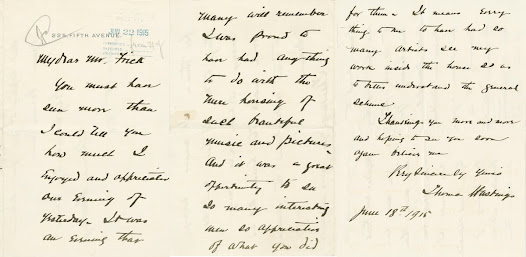 225 FIFTH AVENUE.
22 1915
My dear Mr. Frick
You must have
seen more than
I could tell you
how much I
enjoyed and appreciated
our evening of
yesterday. It was
an evening that
many will remember
I was proud to
have had anything
to do with the
mere housing of
such beautiful
music and pictures
And it was a great
opportunity to see
so many interesting
men so appreciative
of what you did
for them. It means every
thing to me to have had so
many artists see my
work inside the house so as
to better understand the general
scheme.
Thanking you more and more
and hoping to see you soon
again believe me
Very sincerely yours
Thomas Hastings
June 18th 1915